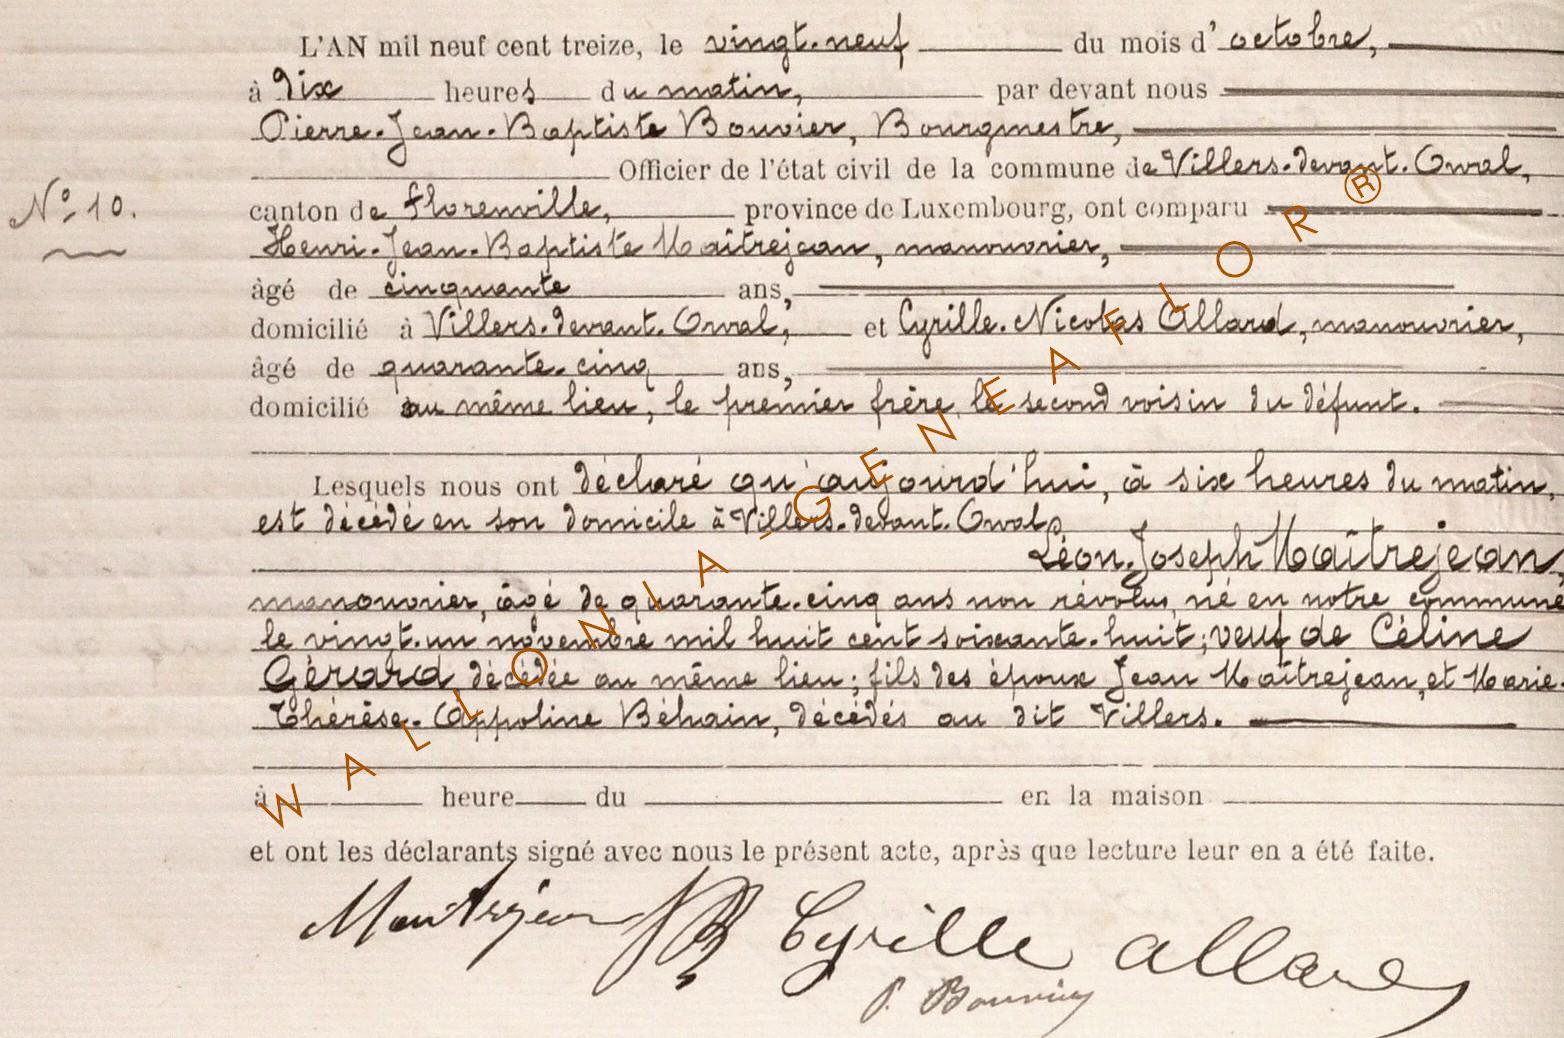 L'AN mil neuf cent treize, le vingt-neuf du mois d'octobre,
à Dix heures du matin, par devant nous
Pierre-Jean-Baptiste Bouvier, Bourgmestre,
Officier de l'état civil de la commune de Villers-devant-Orval,
N° 10.
canton de Florenville, province de Luxembourg, ont comparu
Henri-Jean-Baptiste Maîtrejean, manouvrier,
âgé de cinquante ans,
domicilié à Villers-devant-Orval, et Cyrille-Nicolas Allard, manouvrier,
âgé de quarante-cinq ans,
domicilié au même lieu, le premier frère, le second voisin du défunt.
Lesquels nous ont déclaré qu'aujourd'hui, à six heures du matin,
est décédé en son domicile à Villers-devant-Orval,
Léon-Joseph Maîtrejean,
manouvrier, âgé de quarante-cinq ans non révolus, né en notre commune
le vingt-un novembre mil huit cent soixante-huit; veuf de Céline
Gérard, décédée au même lieu; fils des époux Jean Maîtrejean, et Marie-
Thérèse-Appoline Béhain, décédés au dit Villers.
à heure du en la maison
et ont les déclarants signé avec nous le présent acte, après que lecture leur en a été faite.
Maitrejean Cyrille allard
P. Bouvier
WALLONIA-GENEAFLOR®